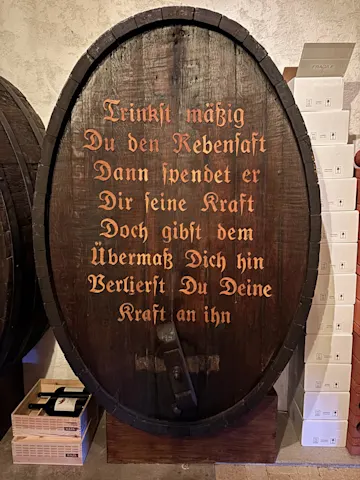 Trinkſt mäßig
Du den Rebenſaft
Dann ſpendet er
Dir ſeine Kraft
Doch gibſt dem
Übermaß Dich hin
Verlierſt Du Deine
Kraft an ihn